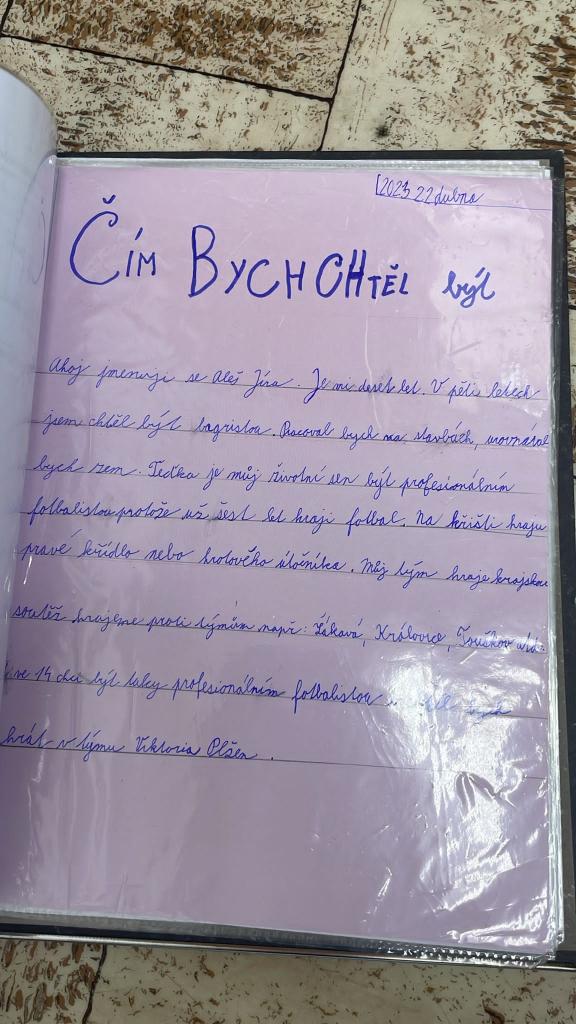 2023 22 dubna
ČÍM BYCH CHTĚL být
Ahoj jmenuji se Aleš Jíra. Je mi deset let. V pěti letech
jsem chtěl být bagristou. Pracoval bych na stavbách, urovnával
bych zem. Teďka je můj životní sen být profesionálním
fotbalistou protože už šest let hraji fotbal. Na hřišti hraju
pravé křídlo nebo hrotového útočníka. Můj tým hraje krajskou
soutěž hrajeme proti týmům např: Žákavá, Královice, Touškov
ve 14 chci být taky profesionálním fotbalistou bych
hrát v týmu Viktoria Plzen.